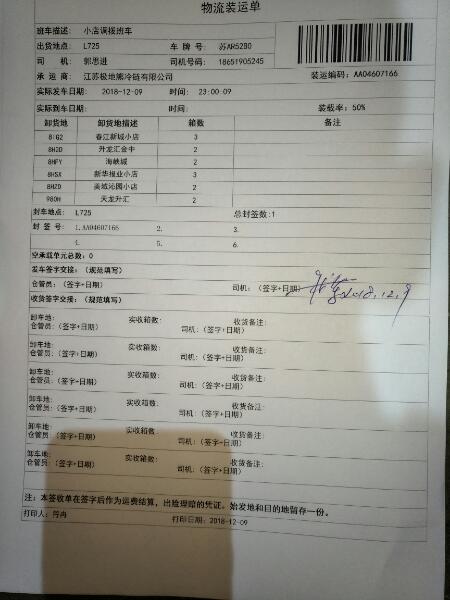 物流装运单
班车描述: 小店调拨班车
出货地点: L725 车 牌 号: 苏AR52B0
司 机: 郭思进 司机号码: 18651905245
承 运 商: 江苏极地熊冷链有限公司 装运编码: AA04607166
实际发车日期: 2018-12-09 时间: 23:00:09
实际到车日期: 时间: 装载率: 50%
卸货地 卸货地描述 箱数 备注
8IG2 春江新城小店 3
8H2D 升龙汇金中 2
8HFY 海峡城 2
8HSX 新华报业小店 3
8HZD 美域沁园小店 2
980H 天龙升汇 2
封车地点: L725 总封签数:1
封 签 号: 1.AA04607166 2. 3.
4. 5. 6.
空承载单元总数: 0
发车签字交接: (规范填写)
仓管员: (签字+日期) 司机: (签字+日期) 2018.12.9
收货签字交接: (规范填写)
卸车地: 实收箱数: 收货备注:
仓管员: (签字+日期) 司机: (签字+日期)
卸车地: 实收箱数: 收货备注:
仓管员: (签字+日期) 司机: (签字+日期)
卸车地: 实收箱数: 收货备注:
仓管员: (签字+日期) 司机: (签字+日期)
卸车地: 实收箱数: 收货备注:
仓管员: (签字+日期) 司机: (签字+日期)
卸车地: 实收箱数: 收货备注:
仓管员: (签字+日期) 司机: (签字+日期)
卸车地: 实收箱数: 收货备注:
仓管员: (签字+日期) 司机: (签字+日期)
注: 本签收单在签字后作为运费结算, 出险理赔的凭证。始发地和目的地留存一份。
打印人: 符冉 打印日期: 2018-12-09